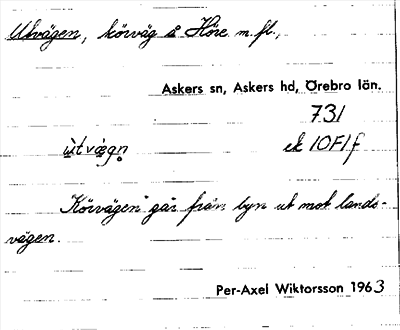 Utvägen, körväg å Höre m. fl.,
Askers sn, Askers hd, Örebro län.
731
ùtvägn̥ ek 10F1f
"Körvägen" går från byn ut mot lands-
vägen.
Per-Axel Wiktorsson 1963